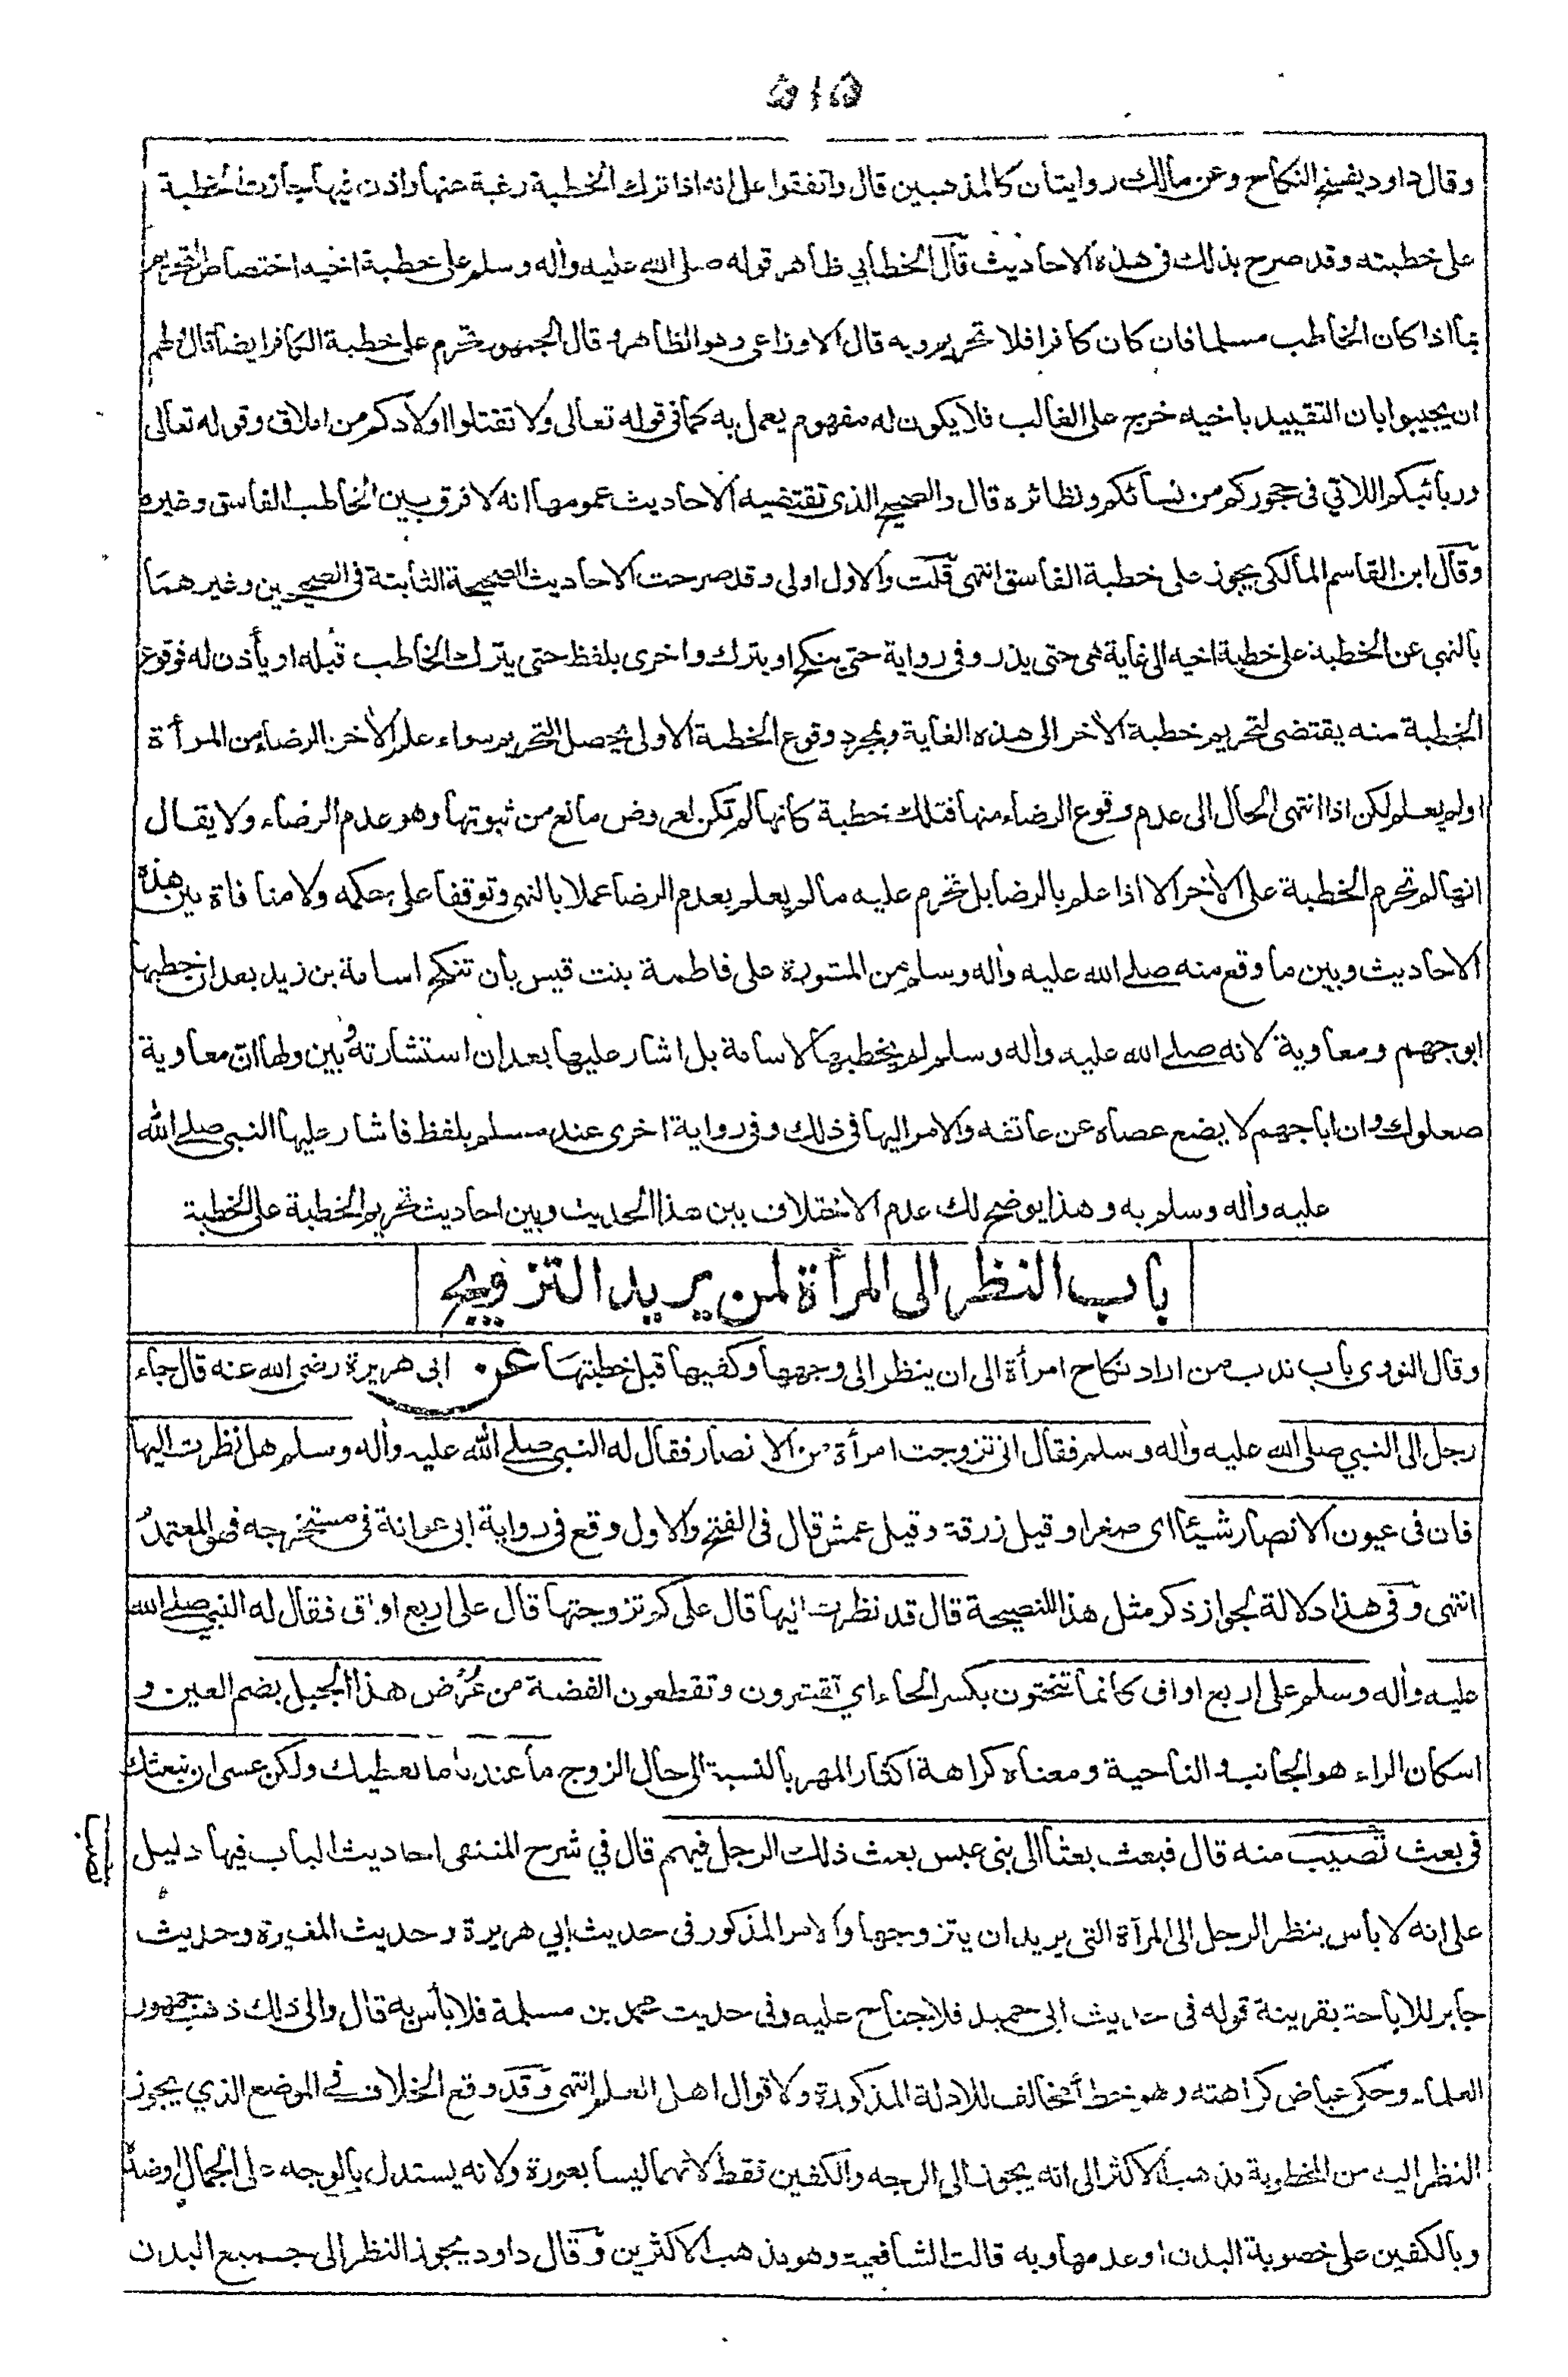 ۵۱۵
وقال داود يفسخ النكاح وعن مالك روايتان كالمذهبين قال واتفقوا على انه اذا ترك الخطبة رغبة عنها واذن فيها جازت الخطبة
على خطبته وقد صرح بذلك فى هذه الاحاديث قال الخطابي ظاهر قوله صلى الله عليه واله وسلم على خطبة اخيه اختصاص التحريم
بما اذا كان الخاطب مسلما فان كان كافرا فلا تحريم وبه قال الاوزاعى وهو الظاهر وقال الجمهور تحرم على خطبة الكافر ايضا قال ولهم
ان يجيبوا بان التقييد باخيه خرج على الغالب فلا يكون له مفهوم يعمل به كما فى قوله تعالى ولا تقتلوا اولادكم من املاق وقوله تعالى
وربائبكم اللاتي فى حجوركم من نسائكم ونظائره قال والصحيح الذى تقتضيه الاحاديث عمومها انه لا فرق بين الخاطب الفاسق وغيره
وقال ابن القاسم المالكى يجوز على خطبة الفاسق انتهى قلت والاول اولى وقد صرحت الاحاديث الصحيحة الثابتة فى الصحيحين وغيرهما
بالنهى عن الخطبة على خطبة اخيه الى غاية هى حتى يذر وفى رواية حتى ينكح او يترك واخرى بلفظ حتى يترك الخاطب قبله او يأذن له فوقوع
الخطبة منه يقتضى تحريم خطبة الأخر الى هذه الغاية وبمجرد وقوع الخطبة الاولى يحصل التحريم سواء علم الأخر الرضاء من المرأة
او لم يعلم لكن اذا انتهى الحال الى عدم وقوع الرضاء منها فتلك خطبة كانها لم تكن لعروض مانع من ثبوتها وهو عدم الرضاء ولا يقال
انها لم تحرم الخطبة على الأخر الا اذا علم بالرضا بل تحرم عليه ما لم يعلم بعدم الرضا عملا بالنهى وتوقفا على حكمه ولا منافاة بين هذه
الاحاديث وبين ما وقع منه صلے الله عليه واله وسلم من المشورة على فاطمة بنت قيس بان تنكح اسامة بن زيد بعد ان خطبها
ابو جهم ومعاوية لانه صلے الله عليه واله وسلم لم يخطبها لاسامة بل اشار عليها بعد ان استشارته وبين لها ان معاوية
صعلوك وان ابا جهم لا يضع عصاه عن عاتقه والامر اليها فى ذلك وفى رواية اخرى عند مسلم بلفظ فاشار عليها النبى صلے الله
عليه واله وسلم به وهذا يوضح لك عدم الاختلاف بين هذا الحديث وبين احاديث تحريم الخطبة على الخطبة
باب النظر الى المرأة لمن يريد التزويج
وقال النووى باب ندب من اراد نكاح امرأة الى ان ينظر الى وجهها وكفيها قبل خطبتها عن ابى هريرة رضى الله عنه قال جاء
رجل الى النبي صلى الله عليه واله وسلم فقال انى تزوجت امرأة من الانصار فقال له النبى صلے الله عليه واله وسلم هل نظرت اليها
فان فى عيون الانصار شيئا اى صغرا وقيل زرقة وقيل عمش قال فى الفتح والاول وقع فى رواية ابى عوانة فى مستخرجه فهو المعتمد
انتهى وفى هذا دلالة لجواز ذكر مثل هذا للنصيحة قال قد نظرت اليها قال على كم تزوجتها قال على اربع اواق فقال له النبى صلے الله
عليه واله وسلم على اربع اواق كانما تنحتون بكسر الحاء اي تقشرون وتقطعون الفضة من عُرْض هذا الجبل بضم العين و
اسكان الراء هو الجانب والناحية ومعناه كراهة اكثار المهر بالنسبة الى حال الزوج ما عندنا ما نعطيك ولكن عسى ان نبعثك
فى بعث تصيب منه قال فبعث بعثا الى بنى عبس بعث ذلك الرجل فيهم قال في شرح المنتقى احاديث الباب فيها دليل
على انه لا بأس بنظر الرجل الى المرأة التى يريد ان يتزوجها والامر المذكور فى حديث ابي هريرة وحديث المغيرة وحديث
جابر للاباحة بقرينة قوله فى حديث ابى حميد فلا جناح عليه وفى حديث محمد بن مسلمة فلا بأس به قال والى ذلك ذهب جمهور
العلماء وحكى عياض كراهته وهو خطأ مخالف للادلة المذكورة ولاقوال اهل العلم انتهى وقد وقع الخلاف في الموضع الذي يجوز
النظر اليه من المخطوبة فذهب الاكثر الى انه يجوز الى الوجه والكفين فقط لانهما ليسا بعورة ولانه يستدل بالوجه على الجمال او ضده
وبالكفين على خصوبة البدن او عدمها وبه قالت الشافعية وهو مذهب الاكثرين وقال داود يجوز النظر الى جميع البدن